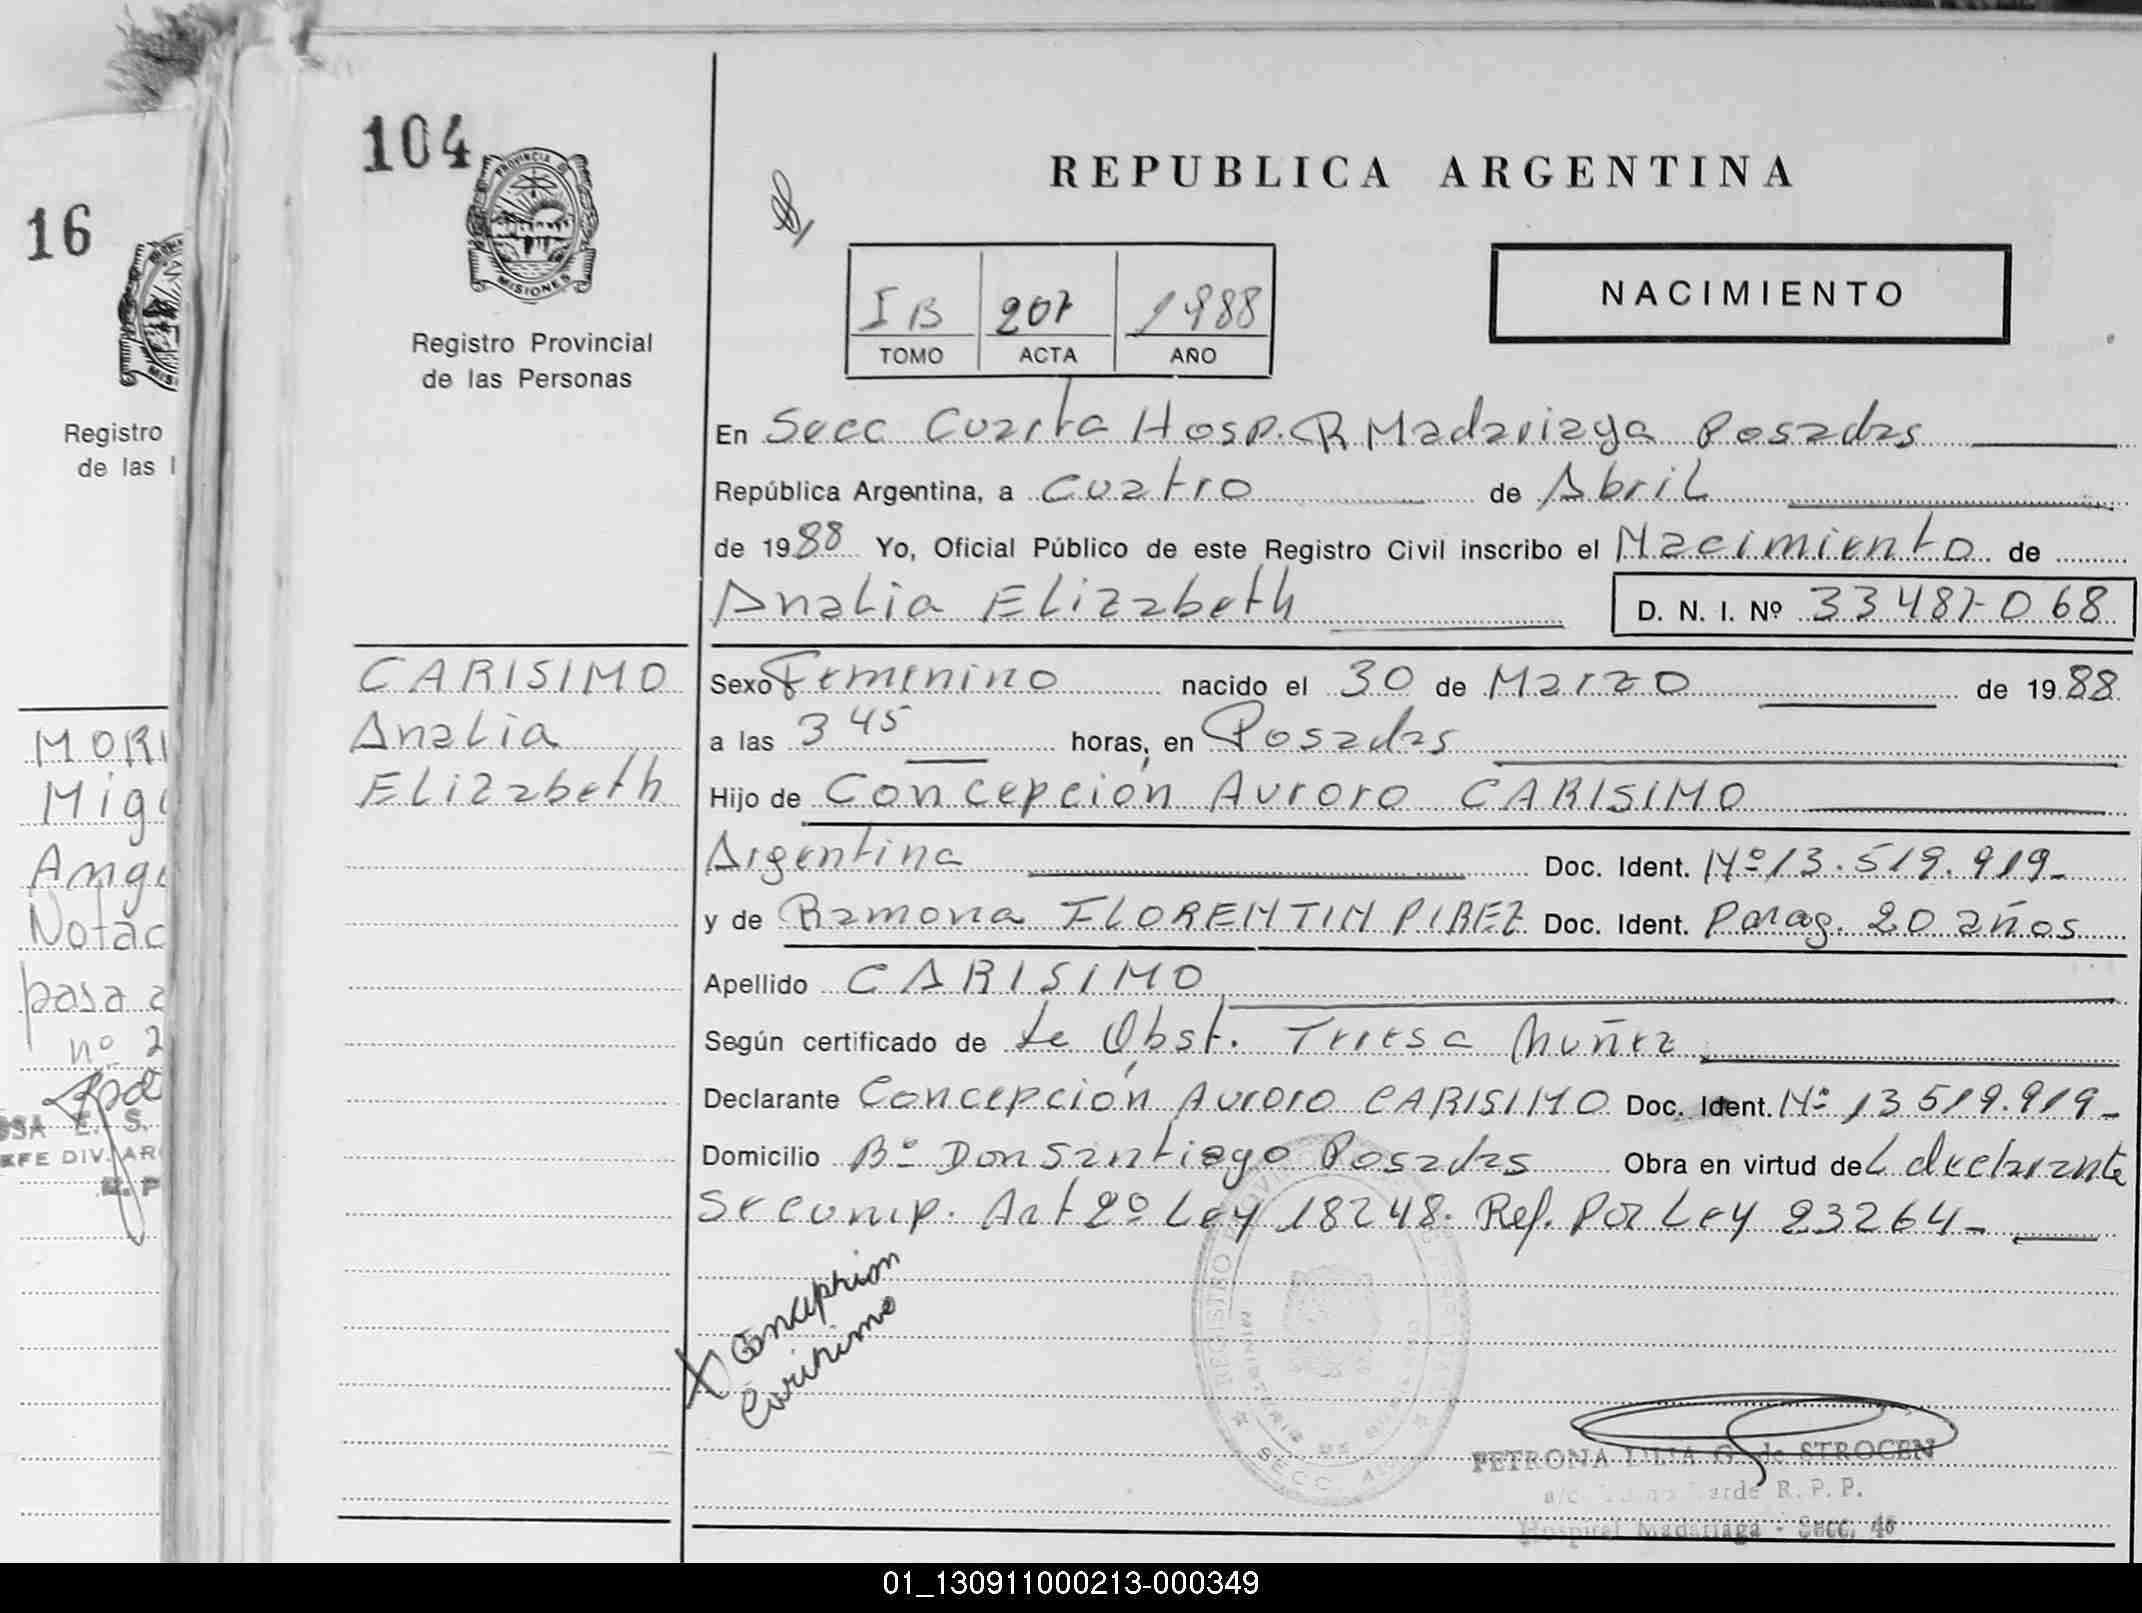 16
Registro
de las
MORI
Migu
Ange
Notac
pasa a
nº 2
OSA E. S.
EFE DIV. AR
104
PROVINCIA DE
MISIONES
Registro Provincial
de las Personas
CARISIMO
Analia
Elizabeth
REPUBLICA ARGENTINA
NACIMIENTO
I B 207 1988
TOMO ACTA AÑO
En Secc Cuarta Hosp. R Madariaga Posadas
República Argentina, a cuatro de Abril
de 1988 Yo, Oficial Público de este Registro Civil inscribo el Nacimiento de
Analia Elizabeth D. N. I. Nº 33.487.068
Sexo Femenino nacido el 30 de Marzo de 1988
a las 3 45 horas, en Posadas
Hijo de Concepción Auroro CARISIMO
Argentina Doc. Ident. Nº 13.519.919-
y de Ramona FLORENTIN PIREZ Doc. Ident. Parag. 20 años
Apellido CARISIMO
Según certificado de Le Obst. Teresa Muñez
Declarante Concepción Auroro CARISIMO Doc. Ident. Nº 13 519.919-
Domicilio Bº Don Santiago Posadas Obra en virtud del declarante
Se cump. Art 2º Ley 18248. Ref. Por Ley 23264-
Concepcion
Carisimo
REGISTRO PROVINCIAL
SECC. 4
PETRONA LILIA G. de STROCEN
R. P. P.
Hospital Madariaga - Secc. 4ª
01_130911000213-000349